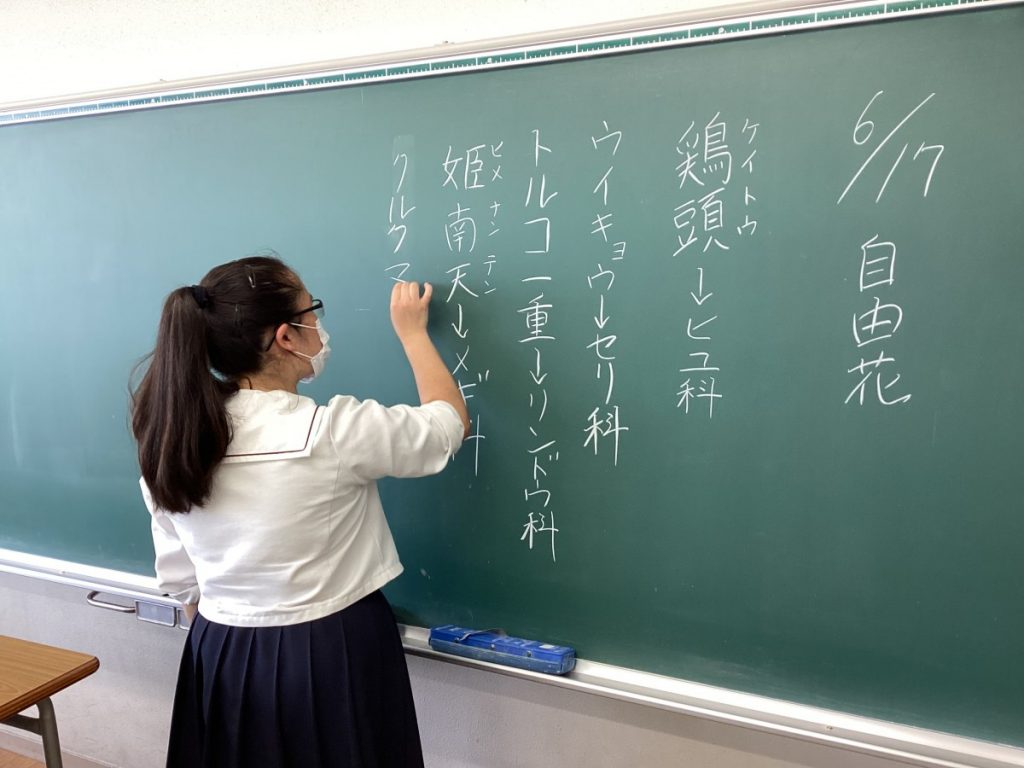 6/17 自由花
鶏頭→ヒユ科
ケイトウ
ウイキョウ→セリ科
トルコ一重→リンドウ科
姫南天→メギ科
ヒメナンテン
クルクマ